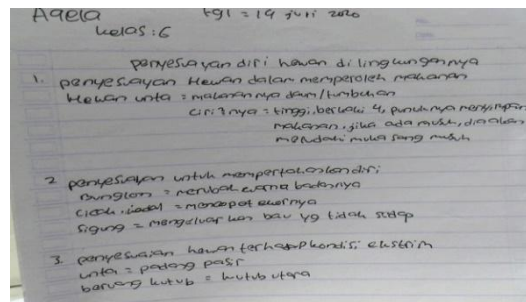 Agela tgl = 14 juli 2020
kelas : 6
penyesuayan diri hewan di lingkungannya
1. penyesuayan Hewan dalam memperoleh makanan
Hewan unta = makanannya daun/tumbuhan
ciri²nya = tinggi, berkaki 4, punuknya menyimpan
makanan, jika ada musuh, dia akan
meludahi muka sang musuh
2 penyesuayan untuk mempertahankan diri
Bunglon = merubah warna badannya
cicak, kadal = mencopot ekornya
sigung = mengeluarkan bau yg tidak sedap
3. penyesuaian hewan terhadap kondisi ekstrim
unta = padang pasir
beruang kutub = kutub utara